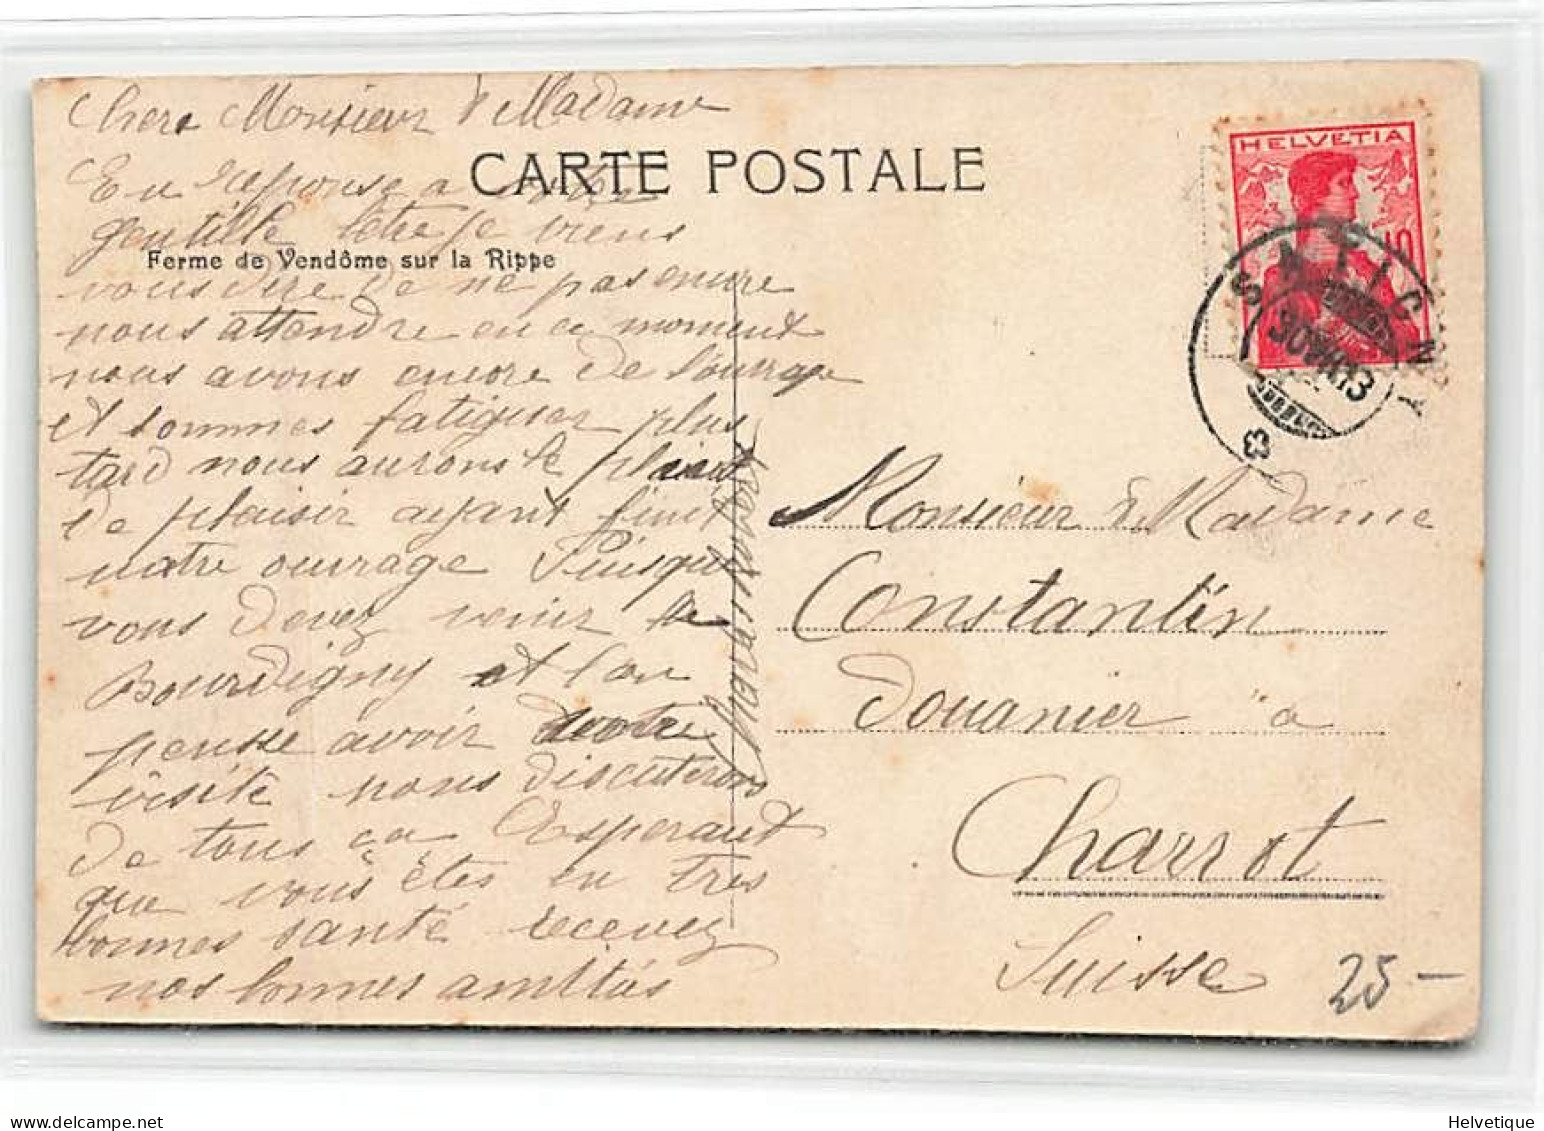 Chers Monsieur & Madame
CARTE POSTALE
En reponse a votre
gentille lettre je viens
Ferme de Vendôme sur la Rippe
vous dire de ne pas encore
nous attendre en ce moment
nous avons encore de l'ouvrage
et sommes fatiguer plus
tard nous aurons le
de plaisir ayant finit
notre ouvrage Puisque
vous devez venir
Bourdigny et l'on
pensse avoir votre
visite nous discuterons
de tous ça Esperant
que vous êtes en tres
bonnes santé recevez
nos bonnes amitiés
HELVETIA
10
SATIGNY
30 VII 13
Monsieur & Madame
Constantin
Douanier à
Charrot
Suisse
25 –
Helvetique